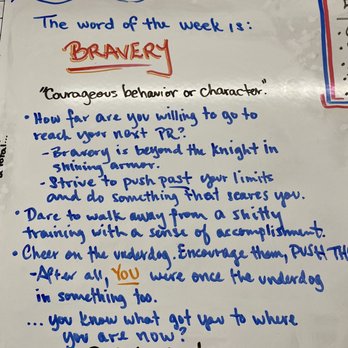 The word of the week is:
BRAVERY
"Courageous behavior or character."
• How far are you willing to go to
reach your next PR?
- Bravery is beyond the knight in
shining armor.
- Strive to push past your limits
and do something that scares you.
• Dare to walk away from a shitty
training with a sense of accomplishment.
• Cheer on the underdog. Encourage them, PUSH TH
- After all, YOU were once the underdog
in something too.
... you know what got you to where
you are now?